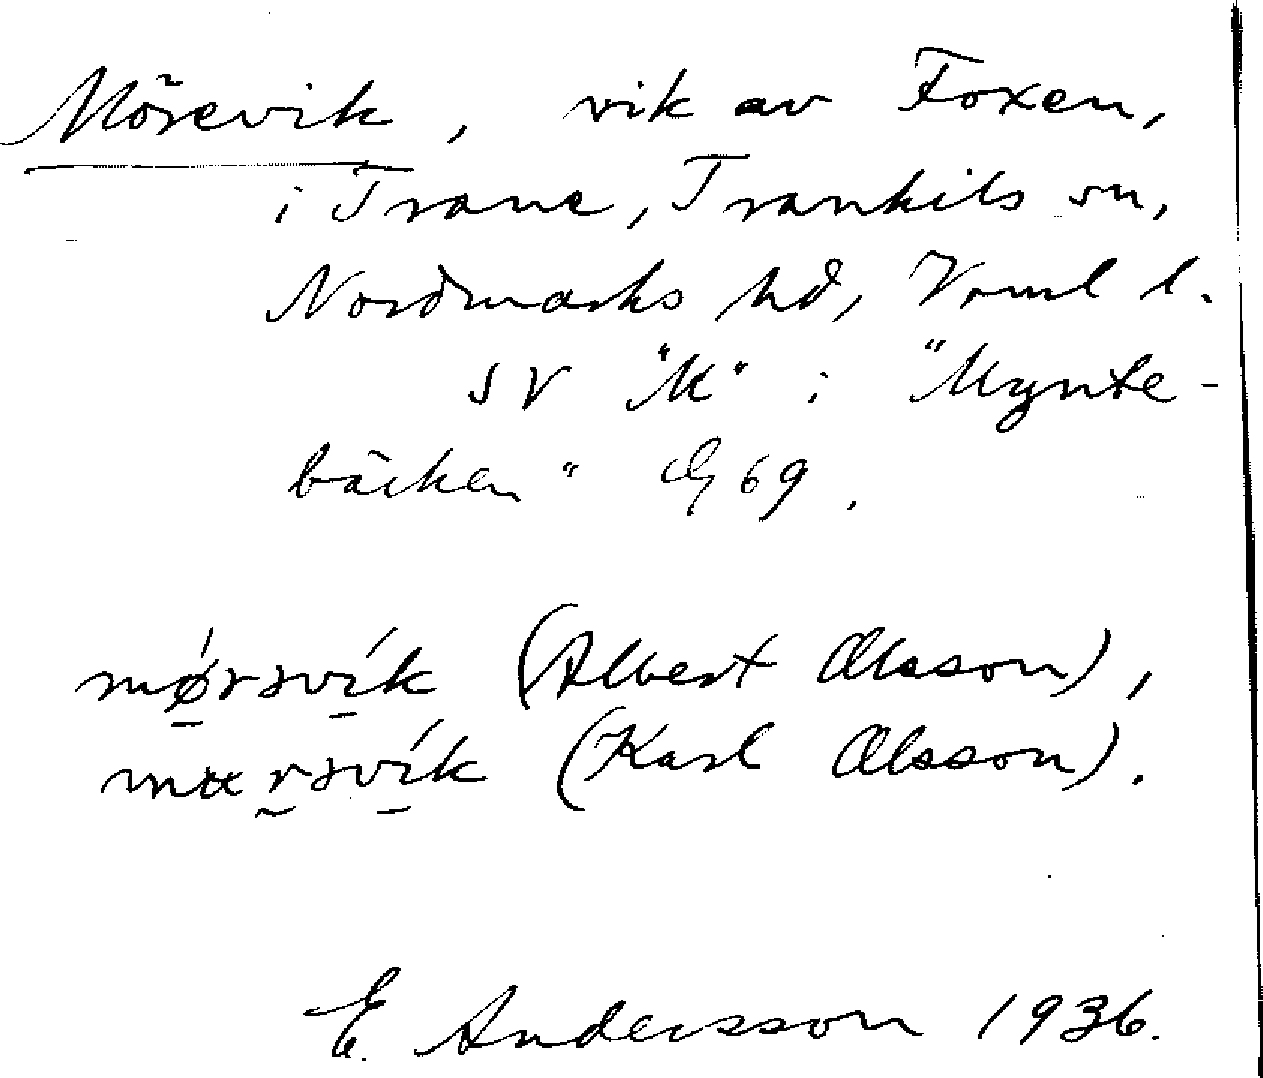 Mörevik, vik av Foxen,
i Trane, Trankils sn,
Nordmarks hd, Vrml l.
SV "M" i "Mynte-
bäcken" G 69.
mørəvík (Albert Olsson),
(Karl Olsson).
E. Andersson 1936.